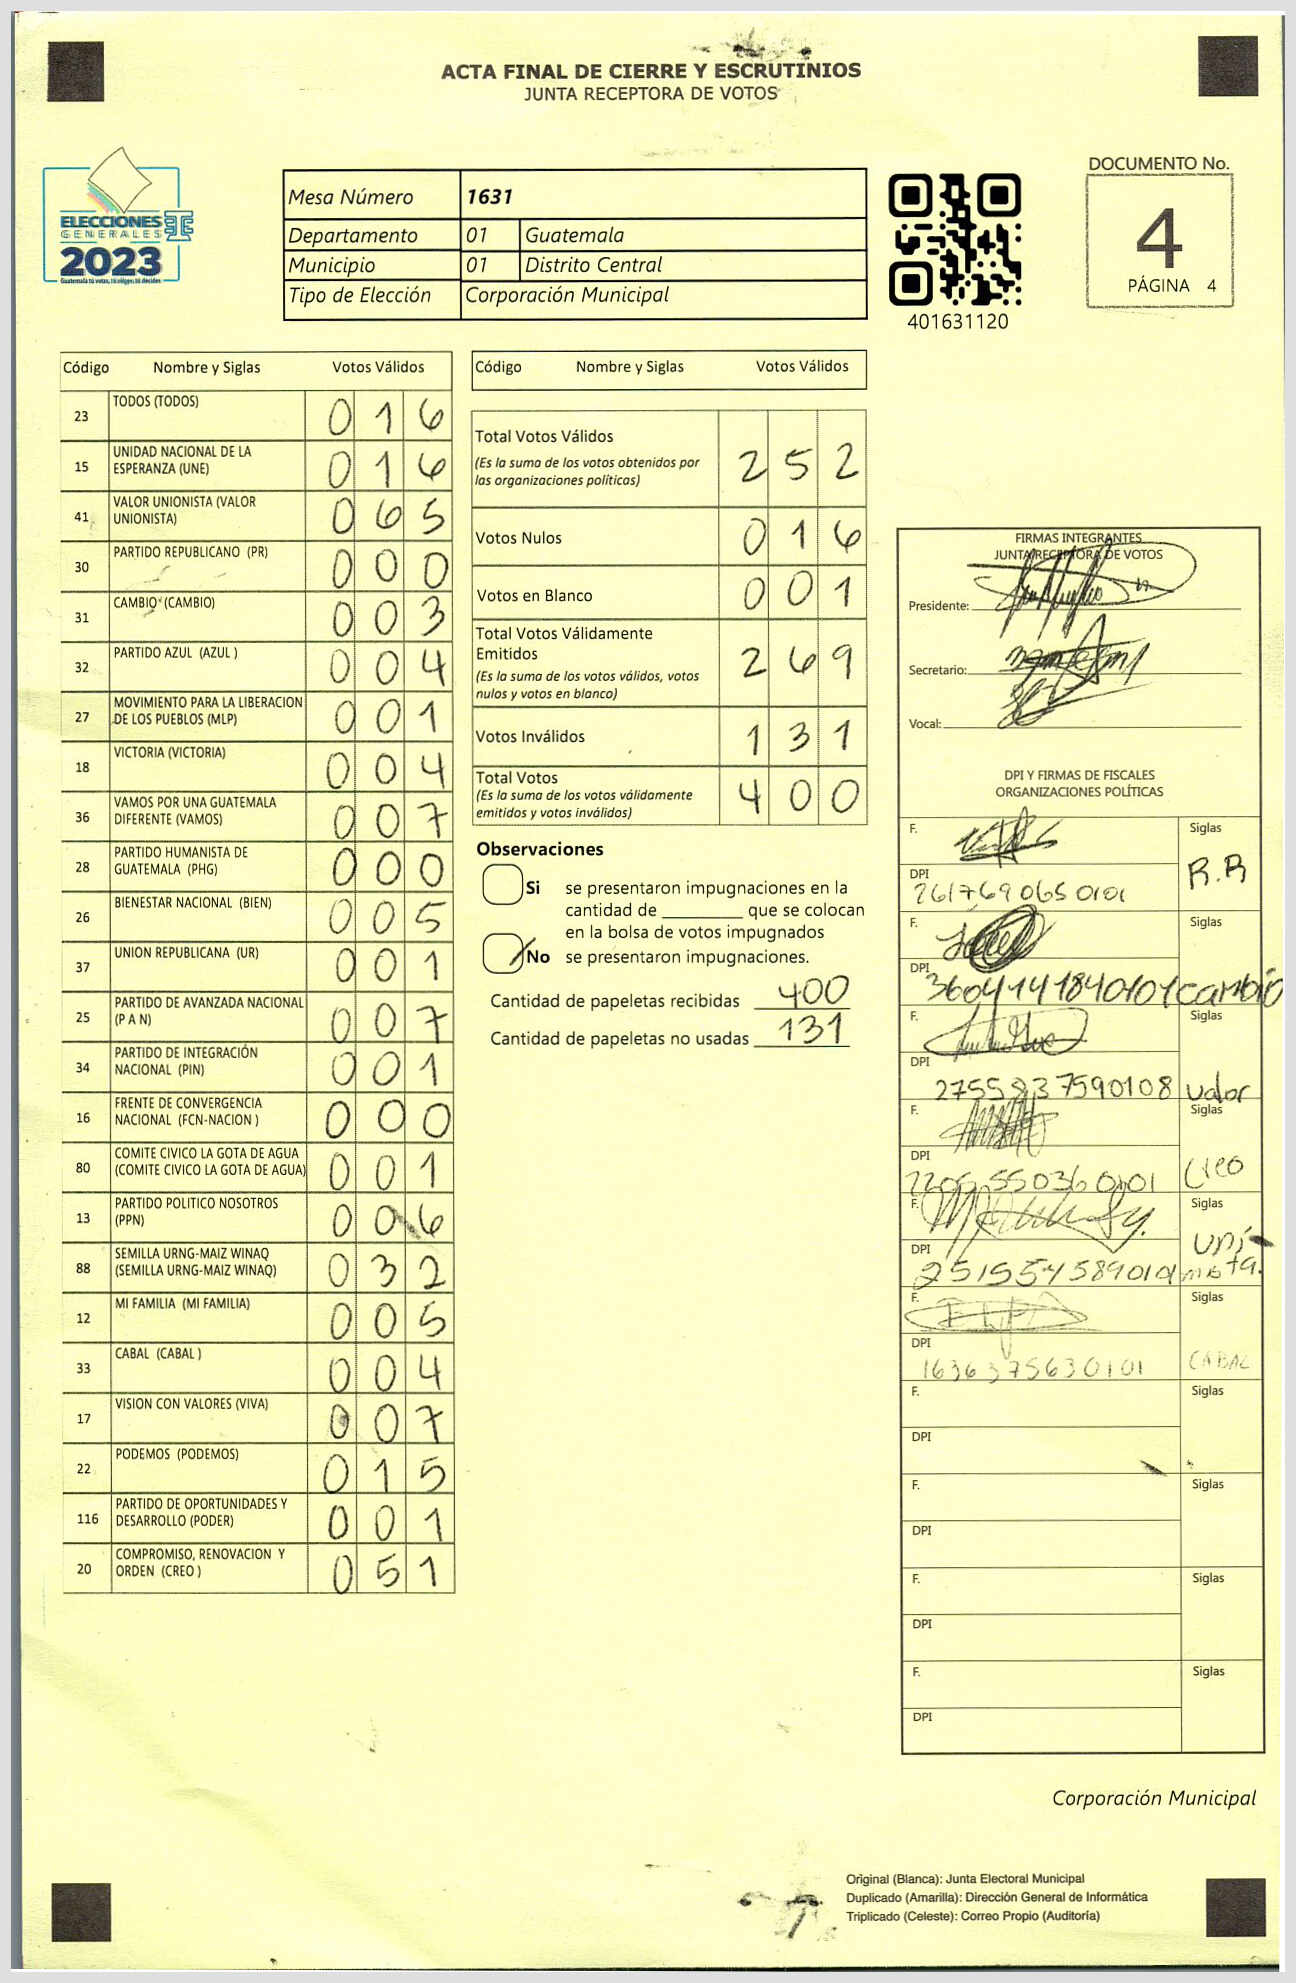 ACTA FINAL DE CIERRE Y ESCRUTINIOS
JUNTA RECEPTORA DE VOTOS
ELECCIONES
GENERALES
2023
Mesa Número 1631
Departamento 01 Guatemala
Municipio 01 Distrito Central
Tipo de Elección Corporación Municipal
401631120
DOCUMENTO No.
4
PÁGINA 4
Código Nombre y Siglas Votos Válidos
23 TODOS (TODOS) 0 1 6
15 UNIDAD NACIONAL DE LA ESPERANZA (UNE) 0 1 6
41 VALOR UNIONISTA (VALOR UNIONISTA) 0 6 5
30 PARTIDO REPUBLICANO (PR) 0 0 0
31 CAMBIO (CAMBIO) 0 0 3
32 PARTIDO AZUL (AZUL ) 0 0 4
27 MOVIMIENTO PARA LA LIBERACION DE LOS PUEBLOS (MLP) 0 0 1
18 VICTORIA (VICTORIA) 0 0 4
36 VAMOS POR UNA GUATEMALA DIFERENTE (VAMOS) 0 0 7
28 PARTIDO HUMANISTA DE GUATEMALA (PHG) 0 0 0
26 BIENESTAR NACIONAL (BIEN) 0 0 5
37 UNION REPUBLICANA (UR) 0 0 1
25 PARTIDO DE AVANZADA NACIONAL (P A N) 0 0 7
34 PARTIDO DE INTEGRACIÓN NACIONAL (PIN) 0 0 1
16 FRENTE DE CONVERGENCIA NACIONAL (FCN-NACION ) 0 0 0
80 COMITE CIVICO LA GOTA DE AGUA (COMITE CIVICO LA GOTA DE AGUA) 0 0 1
13 PARTIDO POLITICO NOSOTROS (PPN) 0 0 6
88 SEMILLA URNG-MAIZ WINAQ (SEMILLA URNG-MAIZ WINAQ) 0 3 2
12 MI FAMILIA (MI FAMILIA) 0 0 5
33 CABAL (CABAL ) 0 0 4
17 VISION CON VALORES (VIVA) 0 0 7
22 PODEMOS (PODEMOS) 0 1 5
116 PARTIDO DE OPORTUNIDADES Y DESARROLLO (PODER) 0 0 1
20 COMPROMISO, RENOVACION Y ORDEN (CREO ) 0 5 1
Código Nombre y Siglas Votos Válidos
Total Votos Válidos 2 5 2
(Es la suma de los votos obtenidos por
las organizaciones políticas)
Votos Nulos 0 1 6
Votos en Blanco 0 0 1
Total Votos Válidamente
Emitidos 2 6 9
(Es la suma de los votos válidos, votos
nulos y votos en blanco)
Votos Inválidos 1 3 1
Total Votos 4 0 0
(Es la suma de los votos válidamente
emitidos y votos inválidos)
Observaciones
Si se presentaron impugnaciones en la
cantidad de ________ que se colocan
en la bolsa de votos impugnados
No se presentaron impugnaciones.
Cantidad de papeletas recibidas 400
Cantidad de papeletas no usadas 131
FIRMAS INTEGRANTES
JUNTA RECEPTORA DE VOTOS
Presidente:
Secretario:
Vocal:
DPI Y FIRMAS DE FISCALES
ORGANIZACIONES POLÍTICAS
F. Siglas
DPI R.R
261769065 0101
F. Siglas
DPI
3604141840101 cambio
F. Siglas
DPI
2755837590108 valor
F. Siglas
DPI Creo
F. Siglas
DPI
2515545890101
F. Siglas
DPI
1636375630101 CABAL
F. Siglas
DPI
F. Siglas
DPI
F. Siglas
DPI
F. Siglas
DPI
Corporación Municipal
Original (Blanca): Junta Electoral Municipal
Duplicado (Amarilla): Dirección General de Informática
Triplicado (Celeste): Correo Propio (Auditoría)